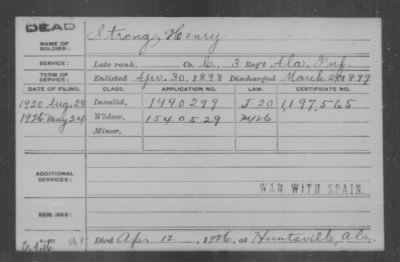 DEAD
NAME OF SOLDIER: Strong, Henry
SERVICE: Late rank, Co. C, 3 Reg't Ala. Inf.
TERM OF SERVICE: Enlisted Apr. 30, 1898 Discharged March 20 1899
DATE OF FILING. CLASS. APPLICATION NO. LAW. CERTIFICATE NO.
1920 Aug. 28 Invalid, 1440299 J 20 1,197,565
1926 May 24 Widow, 1540529 My26
Minor,
ADDITIONAL SERVICES:
WAR WITH SPAIN.
REMARKS:
Died Apr 12, 1926, at Huntsville, Ala.